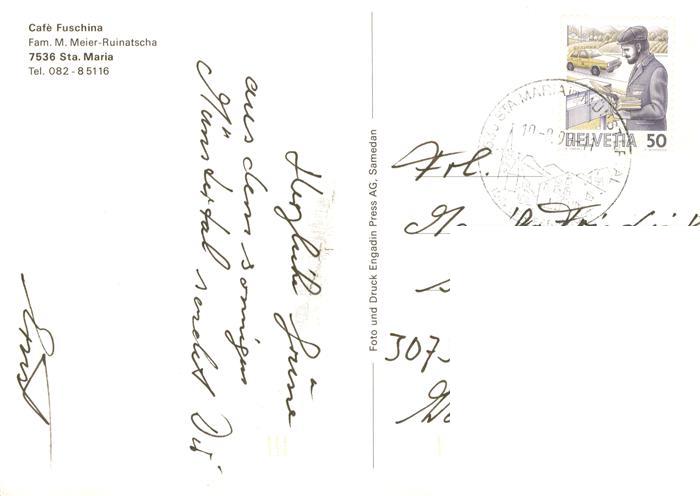 Cafè Fuschina
Fam. M. Meier-Ruinatscha
7536 Sta. Maria
Tel. 082 - 8 51 16
Herzliche Grüsse
aus dem sonnigen
Münstertal sendet Dir
Ernst
Foto und Druck Engadin Press AG, Samedan
HELVETIA 50
STA. MARIA
Frl.
307